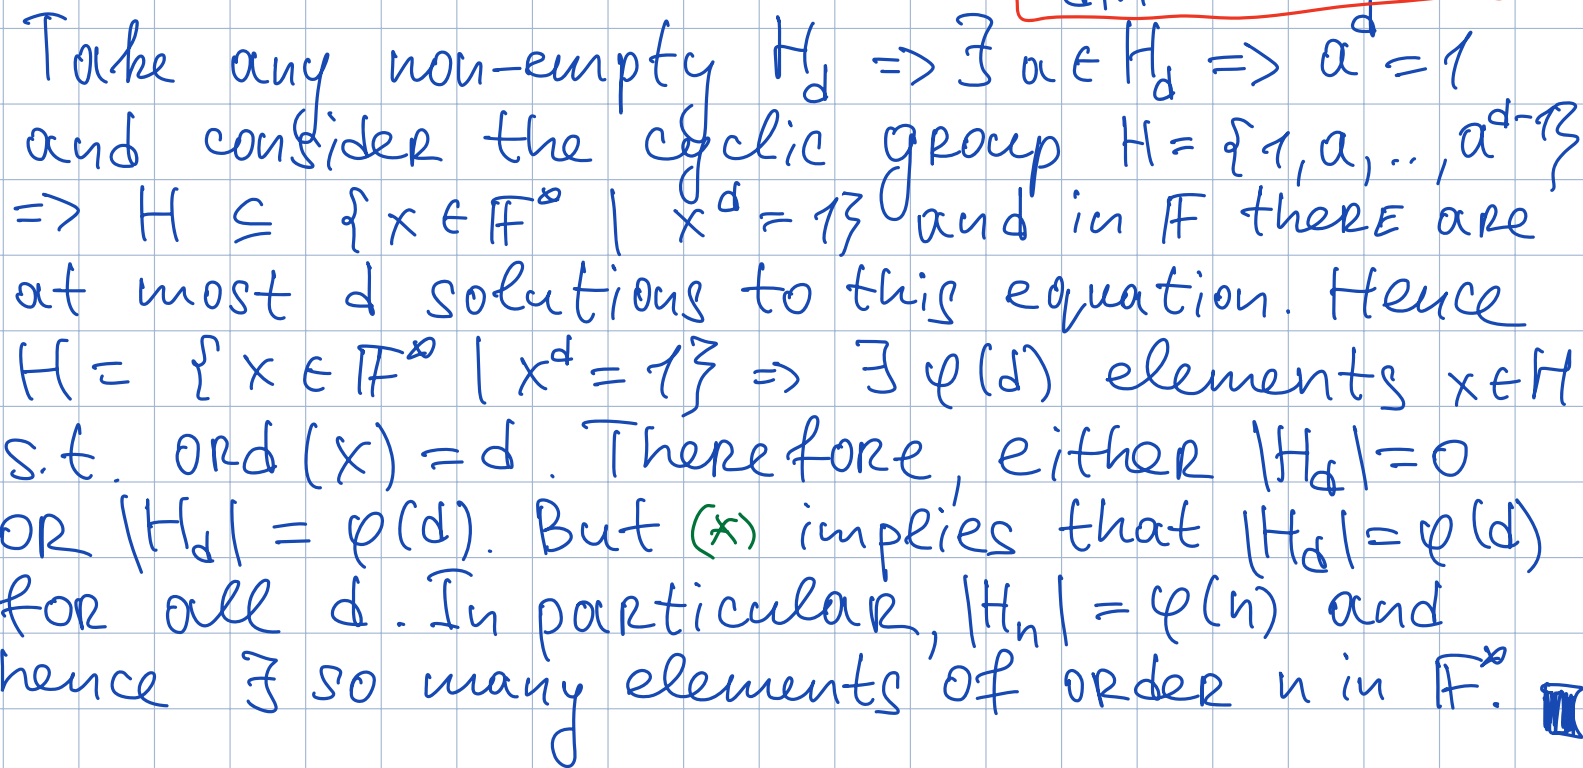 Take any non-empty H_d => ∃ a ∈ H_d => a^d = 1
and consider the cyclic group H = {1, a, ..., a^{d-1}}
=> H ⊆ {x ∈ F^* | x^d = 1} and in F there are
at most d solutions to this equation. Hence
H = {x ∈ F^* | x^d = 1} => ∃ φ(d) elements x ∈ H
s.t. ord(x) = d. Therefore, either |H_d| = 0
or |H_d| = φ(d). But (*) implies that |H_d| = φ(d)
for all d. In particular, |H_n| = φ(n) and
hence ∃ so many elements of order n in F^*.